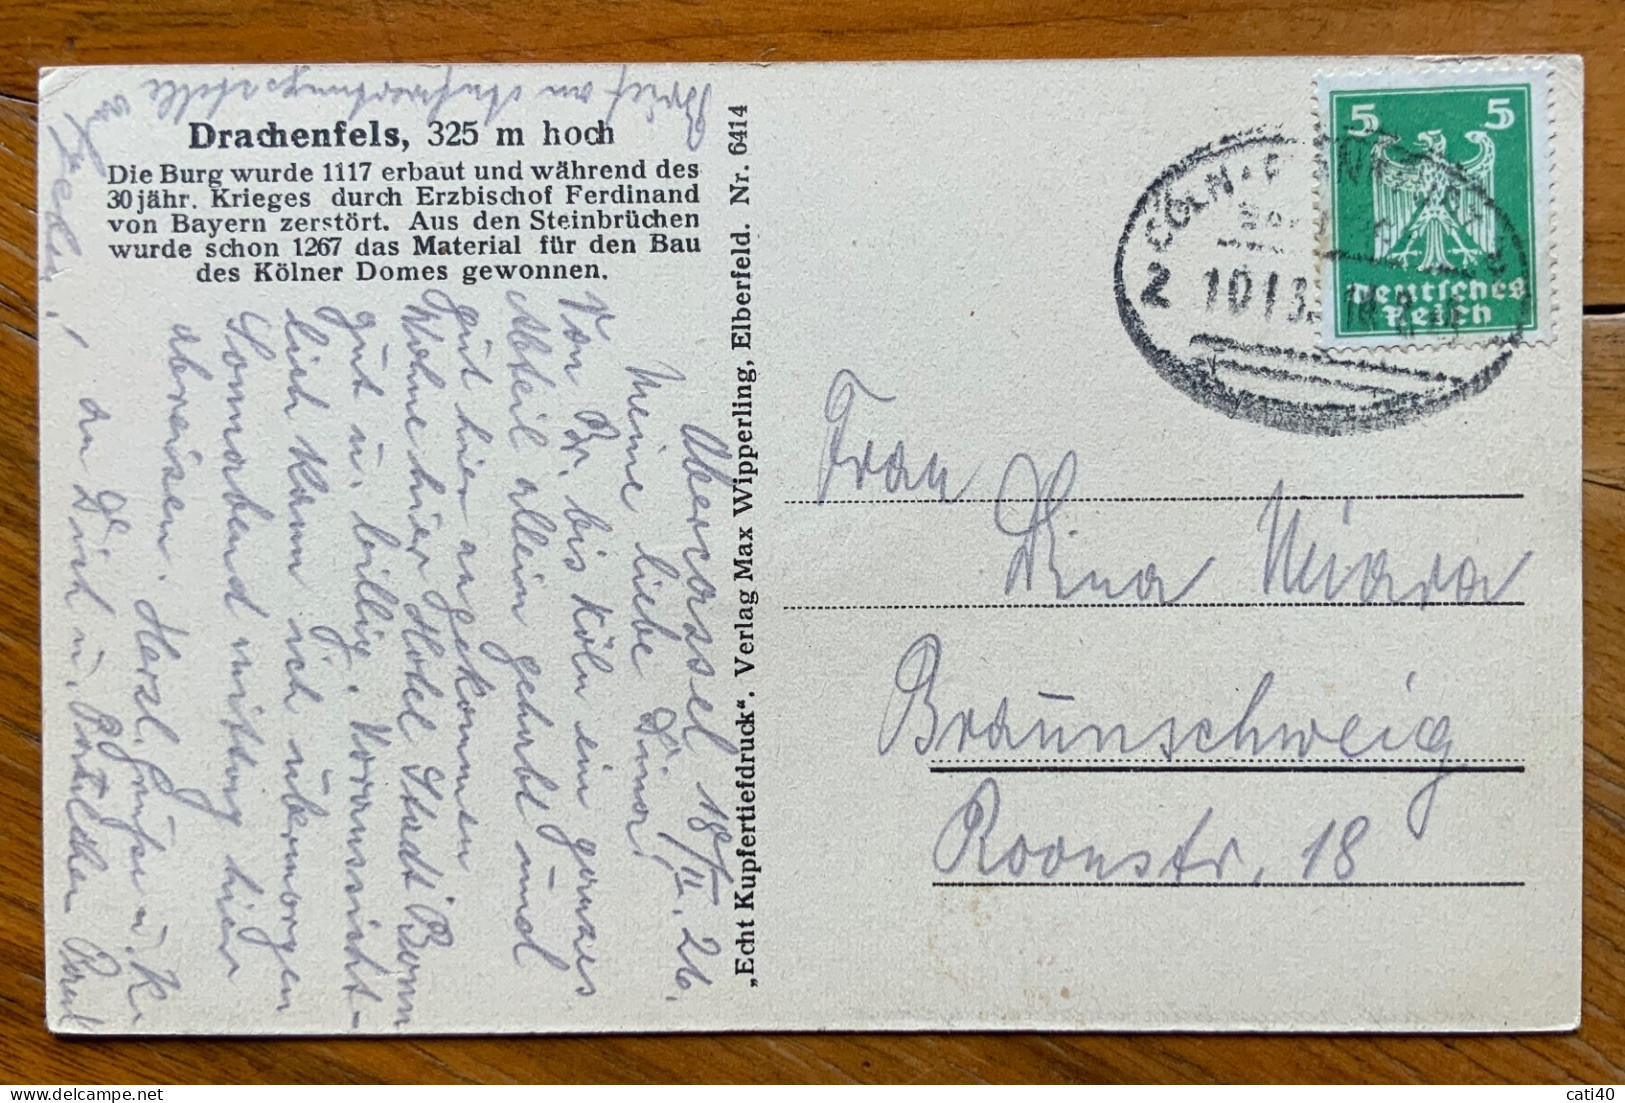 Drachenfels, 325 m hoch
Die Burg wurde 1117 erbaut und während des
30jähr. Krieges durch Erzbischof Ferdinand
von Bayern zerstört. Aus den Steinbrüchen
wurde schon 1267 das Material für den Bau
des Kölner Domes gewonnen.
Obercassel 18/II. 26.
Meine liebe Dina!
Von Br. bis Köln ein ganzes
Abteil allein gehabt und
gut hier angekommen
Wohne hier Hotel Stadt Bonn
gut u. billig. Voraussicht-
lich kann ich übermorgen
Sonnabend mittag hier
abreisen. Herzl. Grüße u. K.
an Dich u.
Brief an Aufwertungsstelle
„Echt Kupfertiefdruck“. Verlag Max Wipperling, Elberfeld. Nr. 6414
5 5
Deutsches
Reich
CÖLN
Z
Frau
Dina Niara
Braunschweig
Roonstr. 18
cati40